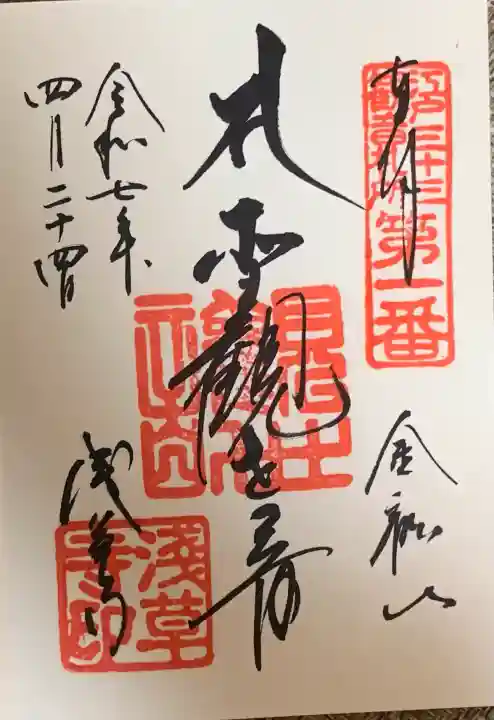 奉拝
江戸三十三
観音札所第一番
金龍山
聖観世音
令和七年
四月二十四日
浅草寺
淺草
寺印